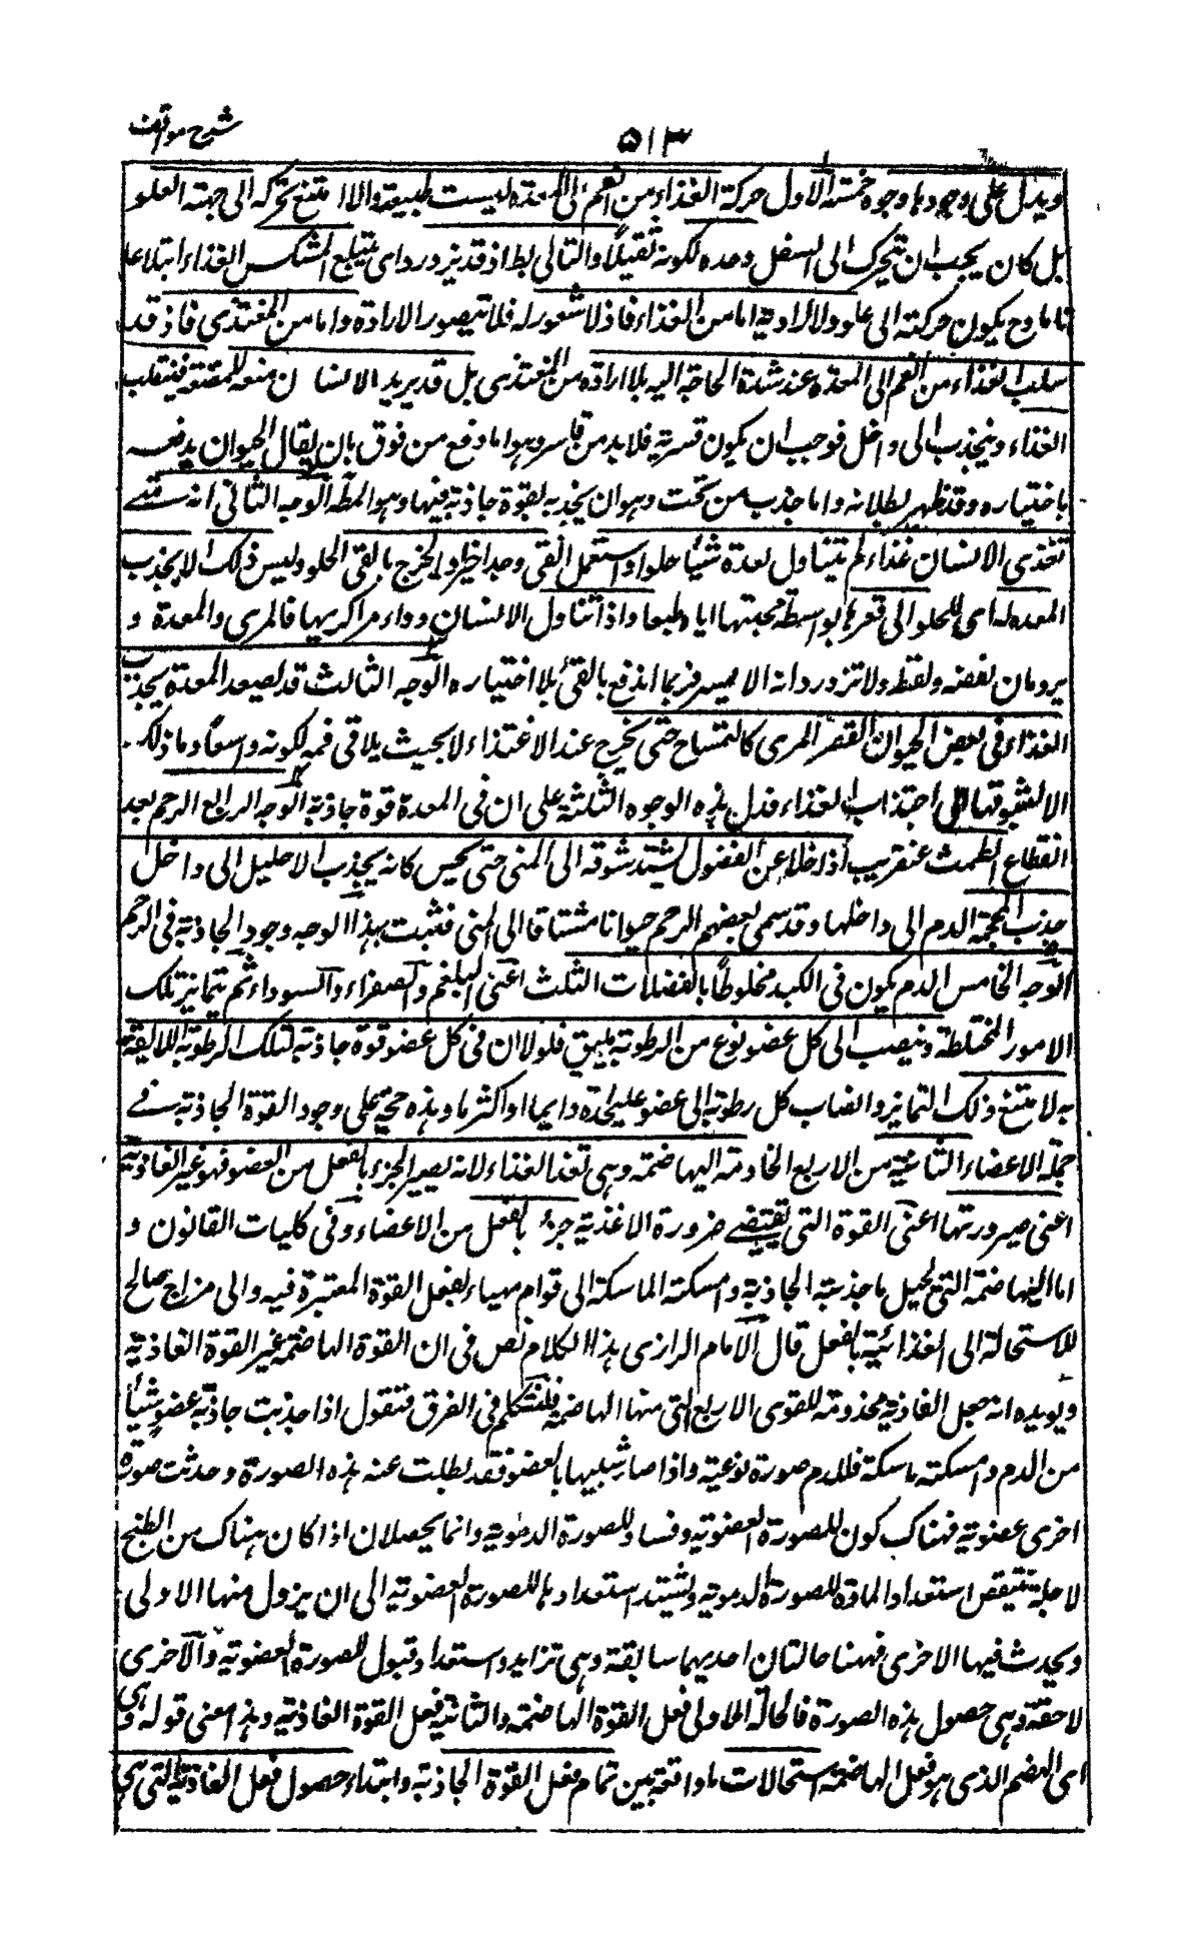 شرح مواقف
۵۱۳
ويدل على وجودها وجوه خمسة الاول حركة الغذاء من الفم الى المعدة ليست طبيعية والا امتنع تحركه الى جهة العلو
بل كان يجب ان يتحرك الى السفل وحده لكونه ثقيلا والتالي بط اذ قد يزدرد اى يبتلع المنتكس الغذاء ابتلاعا
تاما وح يكون حركته الى علو ولا ارادية اما من الغذاء فاذ لا شعور له فلا يتصور الارادة واما من المغتذى فاذ قد
سلب الغذاء من الفم الى المعدة عند شدة الحاجة اليه بلا ارادة من المغتذى بل قد يريد الانسان منعه للمضغ فينقلب
الغذاء وينجذب الى داخل فوجب ان يكون قسرية فلا بد من قاسر وهو اما دفع من فوق بان يقال الحيوان يدفعه
باختياره وقد ظهر بطلانه واما جذب من تحت وهو ان يجذبه بقوة جاذبة فيها وهو المط الوجه الثاني انه متى
تغذى الانسان غذاء ثم يتناول بعده شيئا حلوا واستعمل القى وجد اخيرا والخرج بالقى الحلو وليس ذلك الا لجذب
المعدة له اى للحلو الى قعرها بواسطة محبتها اياه طبعا واذا تناول الانسان دواء مرا كريها فالمرى والمعدة و
يرومان نفضه ولفظه ولا تزدردانه الا بعسر فربما اندفع بالقئ بلا اختياره الوجه الثالث قد يصعد المعدة بجذب
الغذاء في بعض الحيوان القصير المرى كالتمساح حتى تخرج عند الاغتذاء لا بحيث يلاقى فمه لكونه واسعا وما ذلك
الا لشوقها الى اجتذاب الغذاء فدل هذه الوجوه الثلثة على ان في المعدة قوة جاذبة الوجه الرابع الرحم بعد
انقطاع الطمث عنقريب اذا خلا عن الفضول يشتد شوقه الى المنى حتى يحس كانه يجذب الاحليل الى داخل
جذب المحجمة الدم الى داخلها وقد سمى بعضهم الرحم حيوانا مشتاقا الى المنى فثبت بهذا الوجه وجود الجاذبة في الرحم
الوجه الخامس الدم يكون في الكبد مخلوطا بالفضلات الثلث اعنى البلغم والصفراء والسوداء ثم يتمايز تلك
الامور المختلطة وينصب الى كل عضو نوع من الرطوبة يليق فلولا ان في كل عضو قوة جاذبة لتلك الرطوبة اللايقة
به لامتنع ذلك التمايز وانصباب كل رطوبة الى عضو عليحدة دايما او اكثريا وهذه حجة على وجود القوة الجاذبة في
جملة الاعضاء الثانية من الاربع الخادمة الهاضمة وهى تعد الغذاء لانه يصير الجزء بالفعل من العضو فهو غير الغاذية
اعنى صيرورتها اعنى القوة التى تقتضى ضرورة الاغذية جزء بالفعل من الاعضاء وفى كليات القانون و
اما الهاضمة التى تحيل ما جذبته الجاذبة وامسكته الماسكة الى قوام مهياء لفعل القوة المعتبرة فيه والى مزاج صالح
للاستحالة الى الغذائية بالفعل قال الامام الرازى هذا الكلام نص في ان القوة الهاضمة غير القوة الغاذية
ويويده انه جعل الغاذية مخدومة للقوى الاربع التى منها الهاضمة فلنتكلم في الفرق فنقول اذا جذبت جاذبة عضو شيئا
من الدم وامسكته ماسكة فللدم صورة نوعية واذا صار شبيها بالعضو فقد بطلت عنه هذه الصورة وحدثت صورة
اخرى عضوية فهناك كون للصورة العضوية وفساد للصورة الدموية وانما يحصلان اذا كان هناك من الطبخ
لاجله ينتقص استعداد المادة للصورة الدموية ويشتد استعدادها للصورة العضوية الى ان يزول منها الاولى
ويحدث فيها الاخرى فههنا حالتان احديهما سابقة وهى تزايد استعداد قبول الصورة العضوية والاخرى
لاحقة وهى حصول هذه الصورة فالحالة الاولى فعل القوة الهاضمة والثانية فعل القوة الغاذية وهذا معنى قوله وهى
اى الهضم الذى هو فعل الهاضمة استحالات ما واقعة بين تمام فعل القوة الجاذبة وابتداء حصول فعل الغاذية التى هى